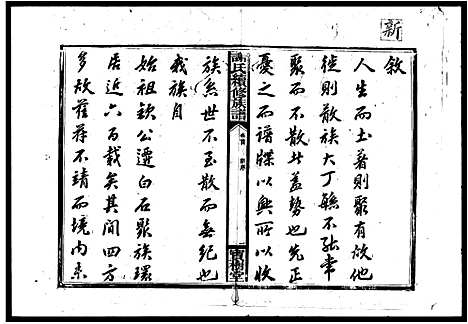 新
敘
人生而土著則聚有故他
徙則散族大丁繇不能常
聚而不散此蓋勢也先正
憂之而譜牒以興所以收
氏續修族譜
卷首
寶樹堂
族系世不至散而無紀也
我族自
始祖欽公遷白石聚族環
居近六百載矣其間四方
多故萑苻不靖而境內未